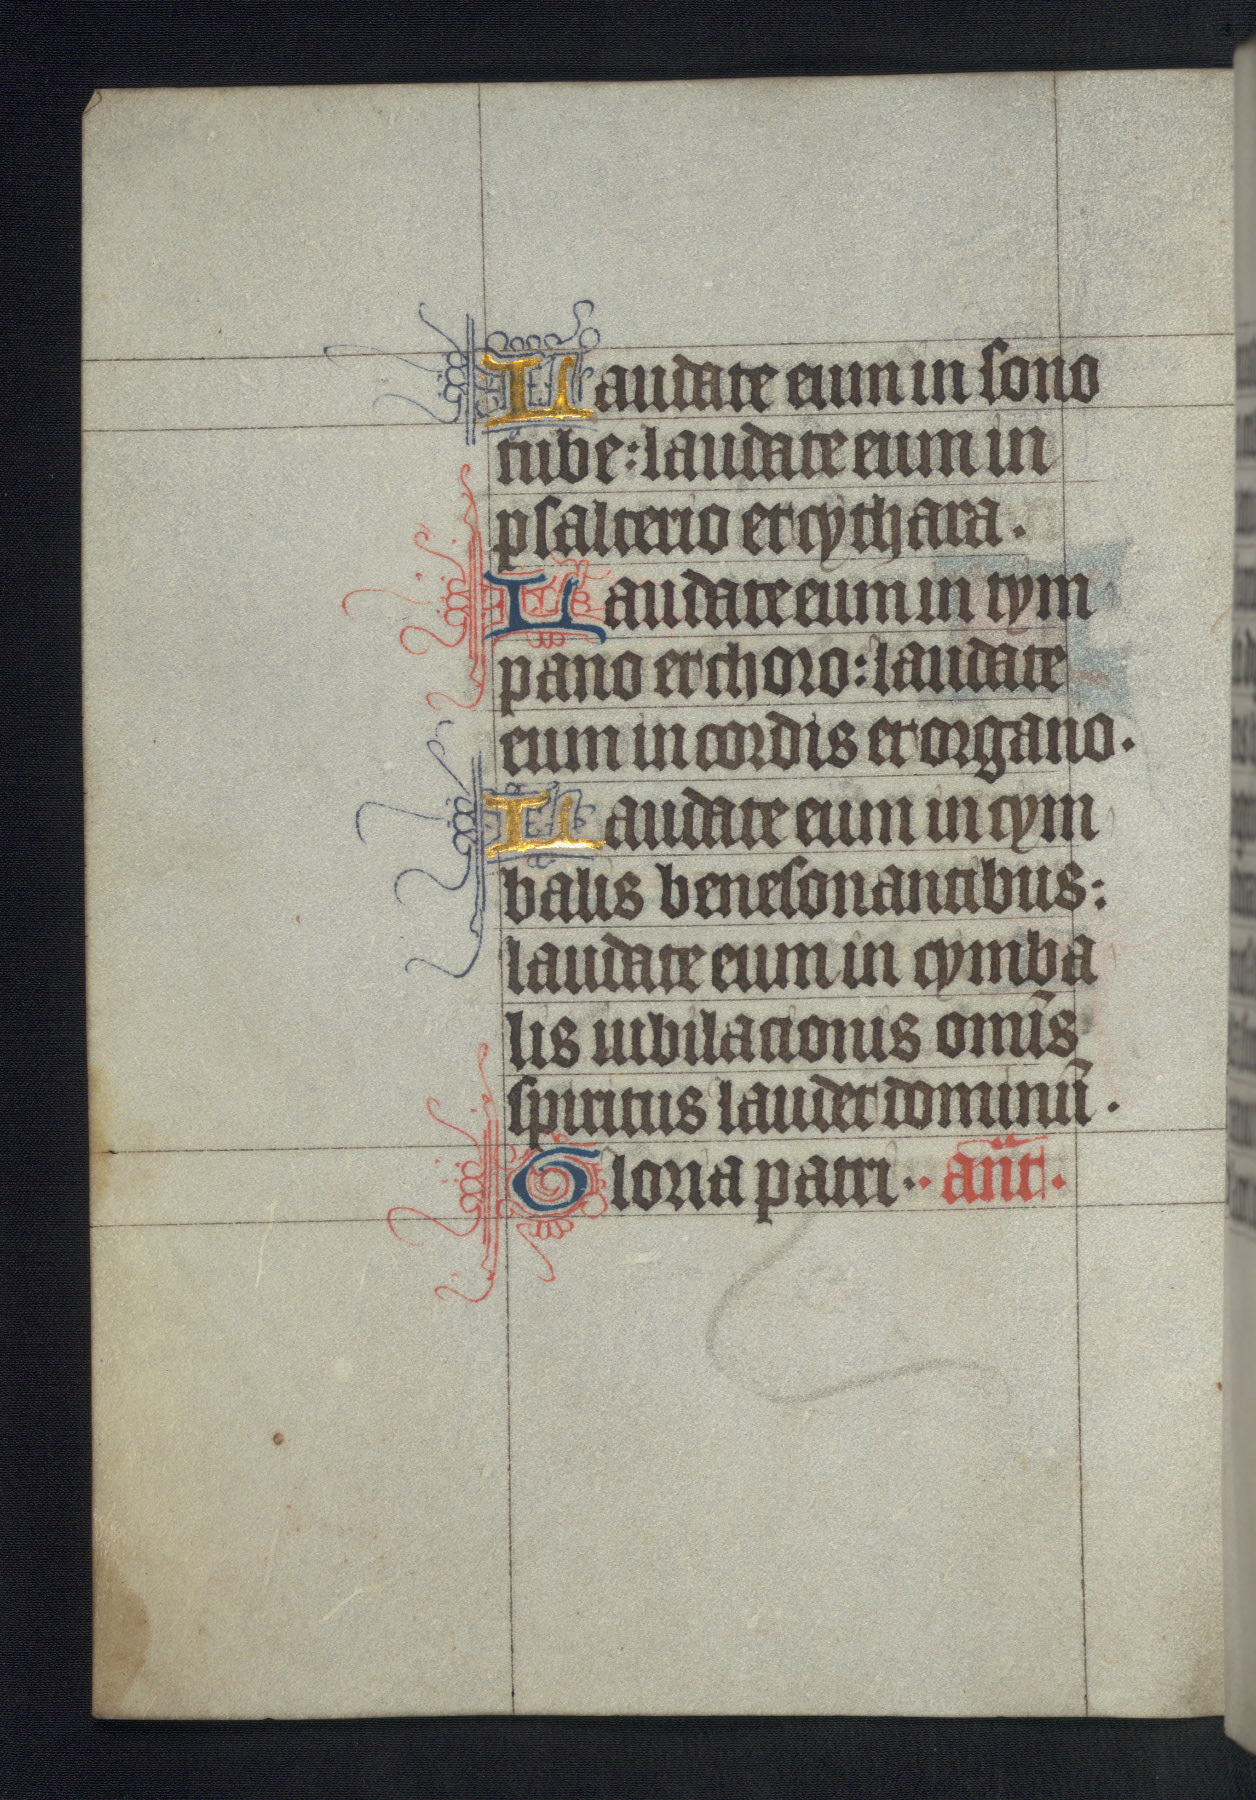 Laudate eum in sono
tube: laudate eum in
psalterio et cythara.
Laudate eum in tym
pano et choro: laudate
eum in cordis et organo.
Laudate eum in cym
balis benesonantibus:
laudate eum in cymba
lis iubilacionis omīs
spiritus laudet dominū.
Gloria patri. añt.